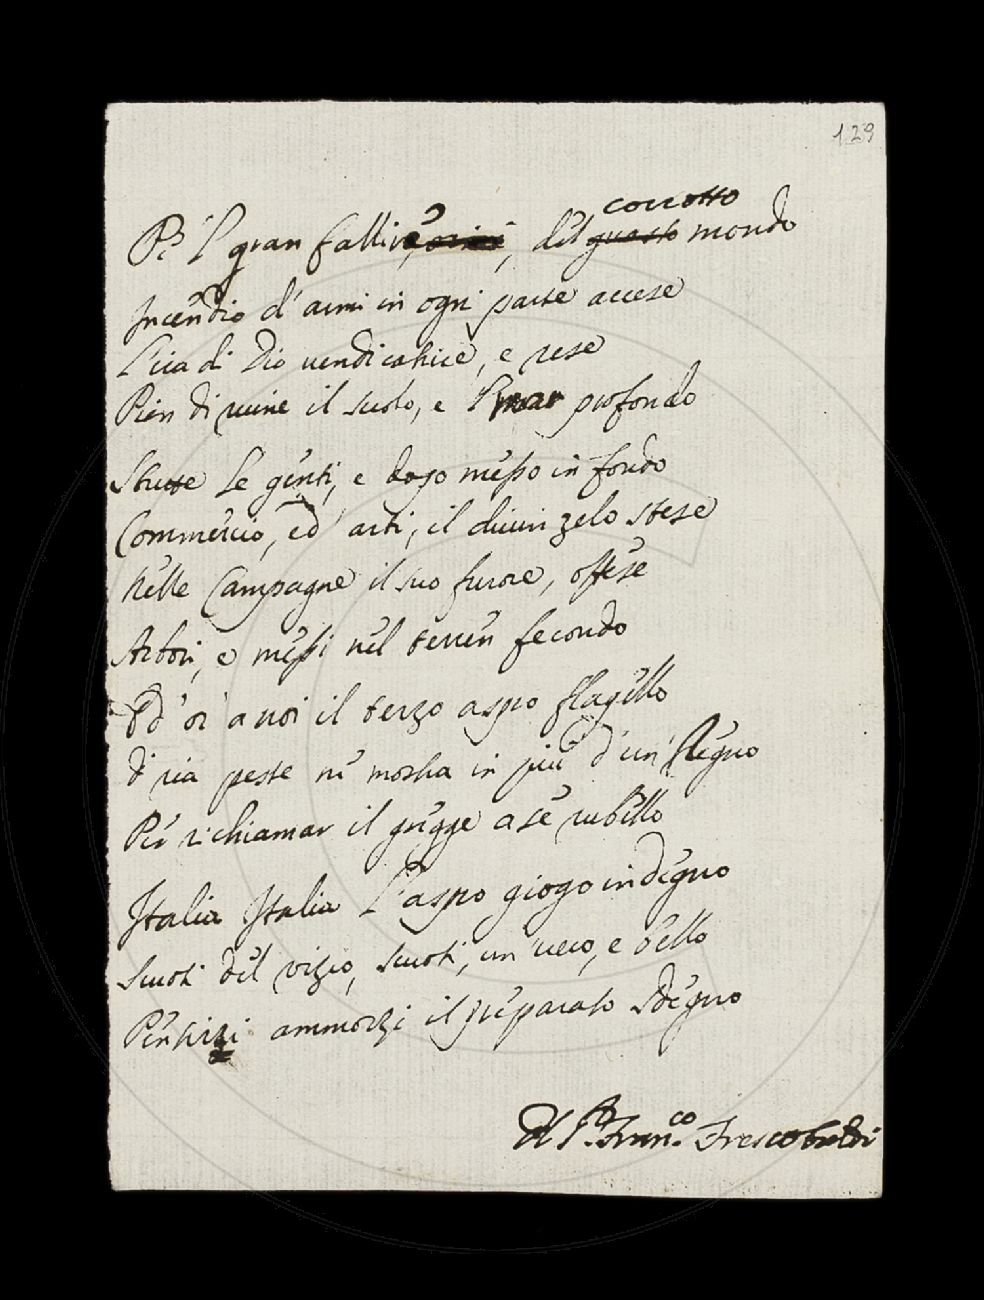 129
corrotto
P. l' gran fallire, del guasto mondo
Incendio d'armi in ogni parte accese
L'ira di Dio vendicatrice, e rese
Pien di ruine il suolo, e l' mar profondo
Strusse le genti, e dopo messo in fondo
Commercio, ed' arti, il divin zelo stese
Nelle Campagne il suo furore, offese
Arbori, e messi nel terren fecondo
Ed' or' a noi il terzo aspro flagello
di ria peste ne mostra in piu d'un' Regno
Per richiamar il gregge a se rubello
Italia Italia L'aspro giogo indegno
Scuoti del vizio, scuoti, un vero, e bello
Pentirsi ammorzi il preparato sdegno
Del S.r Fran.co Frescobaldi